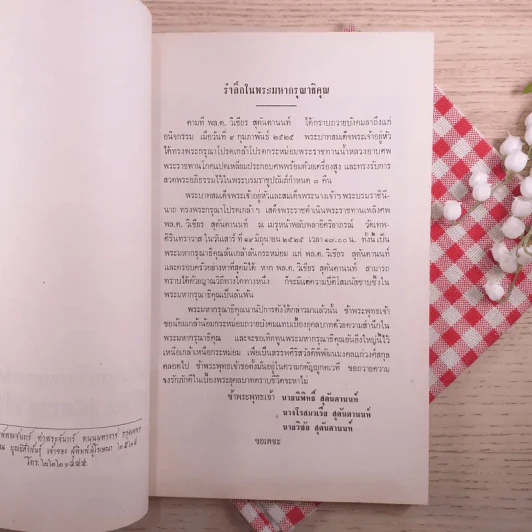 รำลึกในพระมหากรุณาธิคุณ
ตามที่ พล.ต. วิเชียร สุคันตานนท์ ได้กราบถวายบังคมลาถึงแก่
อนิจกรรม เมื่อวันที่ ๙ กุมภาพันธ์ ๒๕๒๕ พระบาทสมเด็จพระเจ้าอยู่หัว
ได้ทรงพระกรุณาโปรดเกล้าโปรดกระหม่อมพระราชทานน้ำหลวงอาบศพ
พระราชทานโกศแปดเหลี่ยมประกอบศพพร้อมด้วยเครื่องสูง และทรงรับการ
สวดพระอภิธรรมไว้ในพระบรมราชูปถัมภ์กำหนด ๓ คืน
พระบาทสมเด็จพระเจ้าอยู่หัวและสมเด็จพระนางเจ้าฯ พระบรมราชินี-
นาถ ทรงพระกรุณาโปรดเกล้าฯ เสด็จพระราชดำเนินพระราชทานเพลิงศพ
พล.ต. วิเชียร สุคันตานนท์ ณ เมรุหน้าพลับพลาอิศริยาภรณ์ วัดเทพ-
ศิรินทราวาส ในวันเสาร์ ที่ ๑๒ มิถุนายน ๒๕๒๕ เวลา ๑๗.๐๐ น. ทั้งนี้ เป็น
พระมหากรุณาธิคุณล้นเกล้าล้นกระหม่อม แก่ พล.ต. วิเชียร สุคันตานนท์
และครอบครัวอย่างหาที่สุดมิได้ หาก พล.ต. วิเชียร สุคันตานนท์ สามารถ
ทราบได้ด้วยญาณวิถีทางใดทางหนึ่ง ก็จะมีแต่ความปีติโสมนัสซาบซึ้งใน
พระมหากรุณาธิคุณเป็นล้นพ้น
พระมหากรุณาธิคุณนานัปการดังได้กล่าวมาแล้วนั้น ข้าพระพุทธเจ้า
ขอน้อมเกล้าน้อมกระหม่อมถวายบังคมแทบเบื้องยุคลบาทด้วยความสำนึกใน
พระมหากรุณาธิคุณ และจะขอเทิดทูนพระมหากรุณาธิคุณอันยิ่งใหญ่นี้ไว้
เหนือเกล้าเหนือกระหม่อม เพื่อเป็นสรรพศิริสวัสดิพิพัฒนมงคลแก่วงศ์สกุล
ตลอดไป ข้าพระพุทธเจ้า ขอตั้งมั่นอยู่ในความกตัญญูกตเวที ขอถวายความ
จงรักภักดีในเบื้องพระยุคลบาทตราบชีวิตจะหาไม่
ข้าพระพุทธเจ้า นายนิพิทธิ์ สุคันตานนท์
นางโรสมาเรีย สุคันตานนท์
นายวิชัย สุคันตานนท์
ขอเดชะ
ท่าพระจันทร์ ถนนมหาราช กรุงเทพฯ
เจ้าของ ผู้พิมพ์ผู้โฆษณา ๒๕๒๕
โทร.